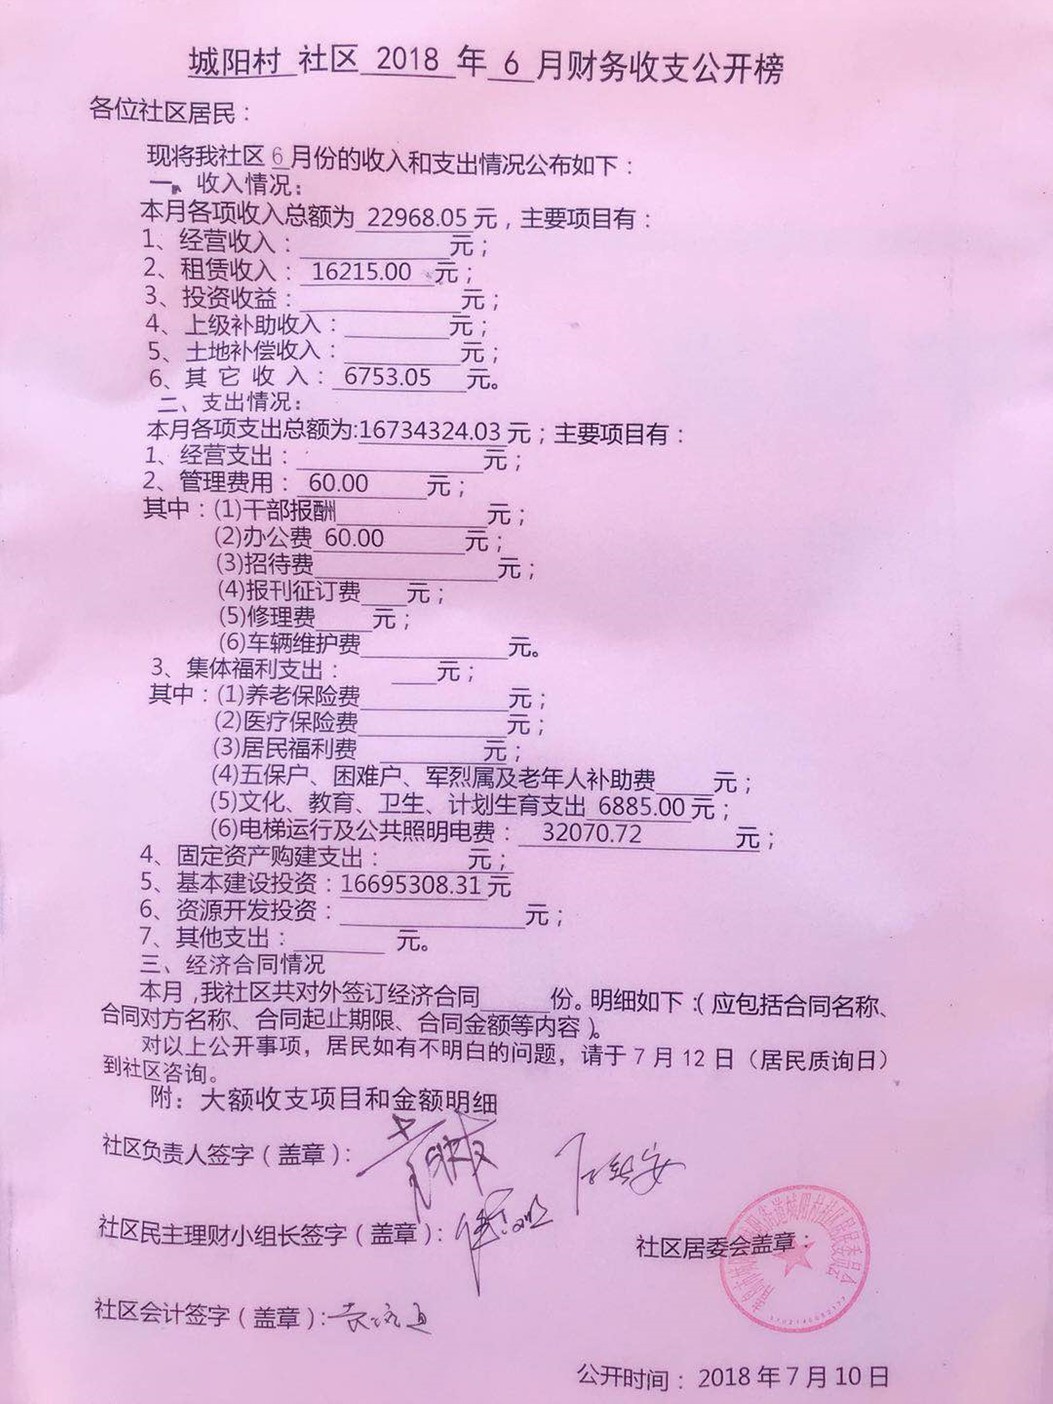 城阳村 社区 2018 年 6 月财务收支公开榜
各位社区居民：
现将我社区 6 月份的收入和支出情况公布如下：
一、收入情况：
本月各项收入总额为 22968.05 元，主要项目有：
1、经营收入：________元；
2、租赁收入：16215.00 元；
3、投资收益：________元；
4、上级补助收入：________元；
5、土地补偿收入：________元；
6、其 它 收 入：6753.05 元。
二、支出情况：
本月各项支出总额为:16734324.03 元；主要项目有：
1、经营支出：________元；
2、管理费用：60.00 元；
其中：(1)干部报酬________元；
(2)办公费 60.00 元；
(3)招待费________元；
(4)报刊征订费____元；
(5)修理费____元；
(6)车辆维护费________元。
3、集体福利支出：____元；
其中：(1)养老保险费________元；
(2)医疗保险费________元；
(3)居民福利费________元；
(4)五保户、困难户、军烈属及老年人补助费____元；
(5)文化、教育、卫生、计划生育支出 6885.00 元；
(6)电梯运行及公共照明电费： 32070.72 元；
4、固定资产购建支出：______元；
5、基本建设投资：16695308.31 元
6、资源开发投资：________元；
7、其他支出：______元。
三、经济合同情况
本月,我社区共对外签订经济合同____份。明细如下:（应包括合同名称、
合同对方名称、合同起止期限、合同金额等内容）。
对以上公开事项，居民如有不明白的问题，请于 7 月 12 日（居民质询日）
到社区咨询。
附：大额收支项目和金额明细
社区负责人签字（盖章）：
社区民主理财小组长签字（盖章）：
社区居委会盖章：
社区会计签字（盖章）：
公开时间：2018 年 7 月 10 日